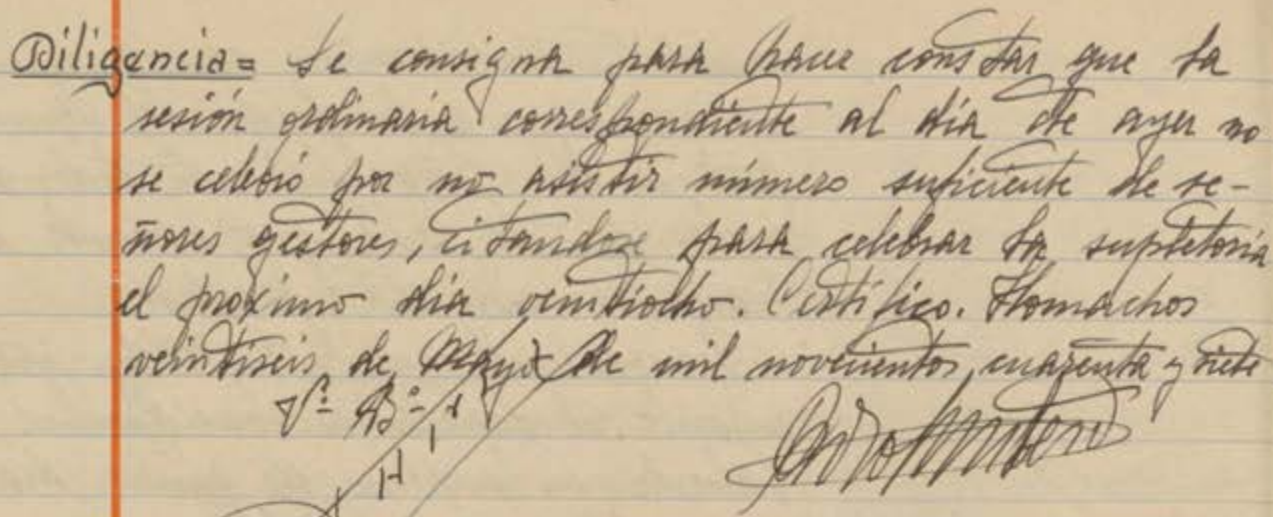 Diligencia = Se consigna para hacer constar que la
sesión ordinaria correspondiente al día de ayer no
se celebró por no asistir número suficiente de se-
ñores gestores, citandose para celebrar la supletoria
el proximo dia veintiocho. Certifico. Hornachos
veintiseis de Mayo de mil novecientos cuarenta y siete
Vº Bº